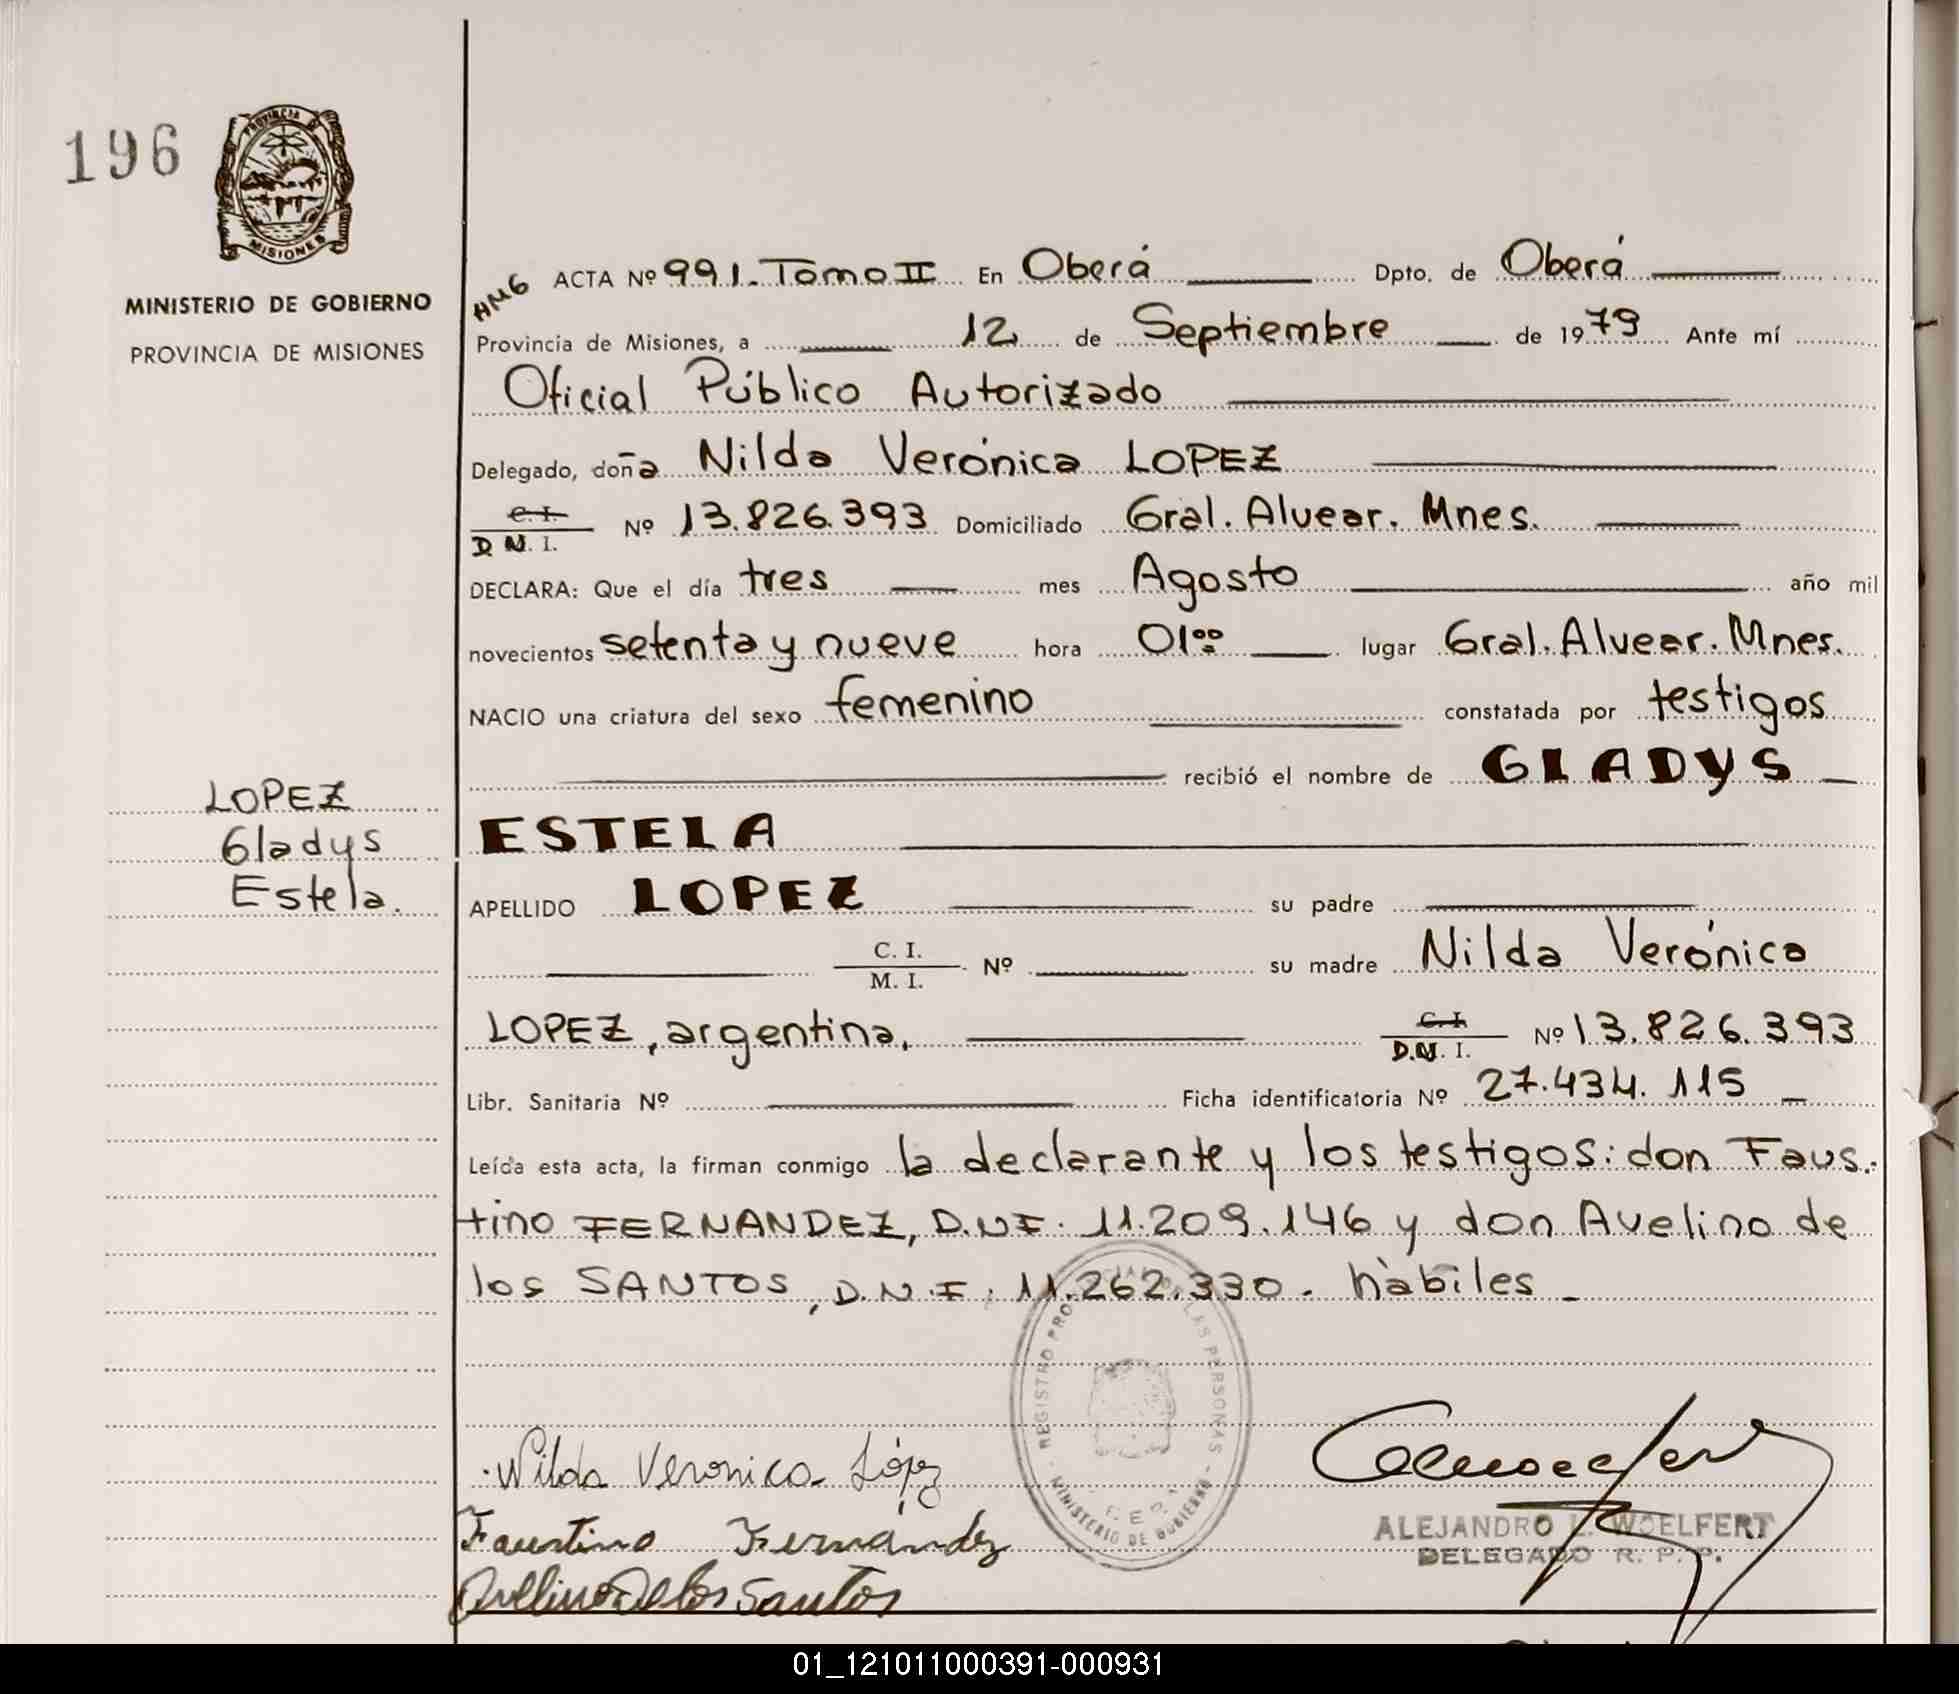 196
PROVINCIA D
MISIONES
MINISTERIO DE GOBIERNO
PROVINCIA DE MISIONES
HMG ACTA Nº 991. Tomo II En Oberá Dpto. de Oberá
Provincia de Misiones, a 12 de Septiembre de 1979 Ante mí
Oficial Público Autorizado
Delegado, doña Nilda Verónica LOPEZ
C. I.
D N. I. Nº 13.826.393 Domiciliado Gral. Alvear. Mnes.
DECLARA: Que el día tres mes Agosto año mil
novecientos setenta y nueve hora 01⁰⁰ lugar Gral. Alvear. Mnes.
NACIO una criatura del sexo femenino constatada por testigos
recibió el nombre de GLADYS
ESTELA
LOPEZ
Gladys
Estela.
APELLIDO LOPEZ su padre
C. I.
M. I. Nº su madre Nilda Verónica
LOPEZ, argentina, C. I.
D.N. I. Nº 13.826.393
Libr. Sanitaria Nº Ficha identificatoria Nº 27.434.115
Leída esta acta, la firman conmigo la declarante y los testigos: don Faus-
tino FERNANDEZ, D.N.I. 11.209.146 y don Avelino de
los SANTOS, D.N.I. 11.262.330. hàbiles
REGISTRO PRO LAS PERSONAS
MINISTERIO DE GOBIERNO
Nilda Veronica López
Faustino Fernández
Avelino De los Santos
ALEJANDRO L. WOELFERT
DELEGADO R. P. P.
01_121011000391-000931